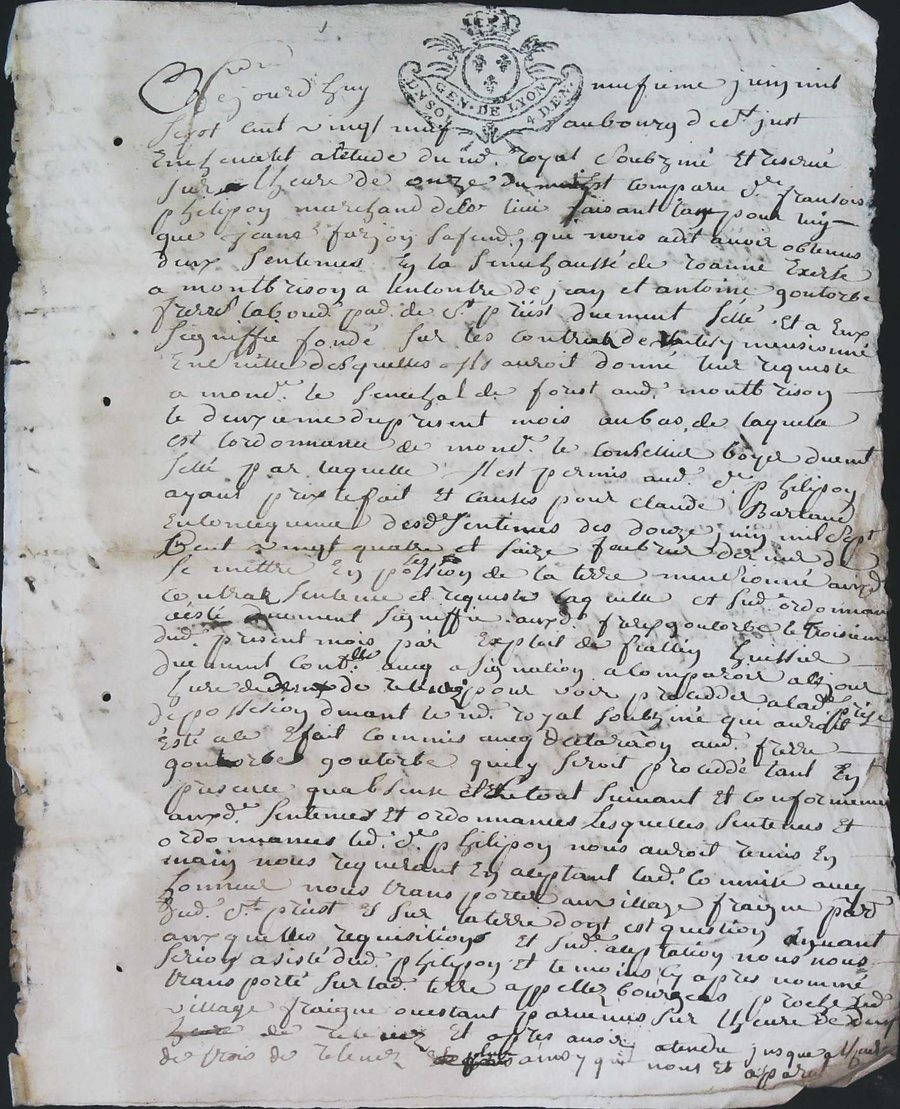 GEN. DE LYON
UN SOL 4 DEN.
Cejourd huy neufieme juin mil
sept cent vingt neuf au bourg de St just
En chevallet atitude du nre royal soubziné et reservé
sur l'heure de onze du Est comparu Sr fransois
philipon marchand de lieu faisant tant pour luy
que jeanne farjon sa fend qui nous a dit avoir obtenus
deux sentenses En la senechaussé de roanne Exersé
a montbrison a lencontre de jean et antoine goutorbe
freres laboud pad de St priest duement sellé Et a Eux
signiffié fondé sur les contrat de mensionné
En suitte desquelles ils auroit donné leur requeste
a monr le senechal de forest aud montbrison
le deuxieme du present mois au bas de laquelle
est lordonnance de monr le conseiller boyer duemt
sellé par laquelle Il est permis aud Sr philipon
ayant prix le fait et causes pour claude Barlaud
En consequence desd sentenses des douze juin mil sept
Cent vingt quatre et saize feubvrier dernier de
se mettre En possetion de la terre mensionné auxd
contrat sentense et requeste laquelle et sud ordonnan
a esté duement signiffié auxd freres goutorbe le troisieme
dud present mois par Exploit de frallin huissier
duement contllé avec asignation a comparoir a ce jour
heure de de relevez pour voir procedder a lad prise
de possession devant le nre royal soubziné qui auroit
Esté a le Effait commis avec declaration aud frere
goutorbe goutorbe quily seroit proceddé tant En
presence qu absense Et le tout suivant et conformement
auxd sentenses et ordonnances lesquelles sentenses et
ordonnances led Sr philipon nous auroit remis En
main nous requerant En aceptant lad commise avec
honneur nous transporter au village fraigne pard
dud St priest Et sur la terre dont est question
auxquelles requisitions et sud aceptation nous nous
serions asisté dud philipon et temoins cy apres nommé
transporté sur lad terre appellez bourgeas proche led
village fraigne ou estant parvenus sur lheure de deux
heure de relevez Et apres avoir atendu jusque a lheure
de trois de relevez nous Est aparu